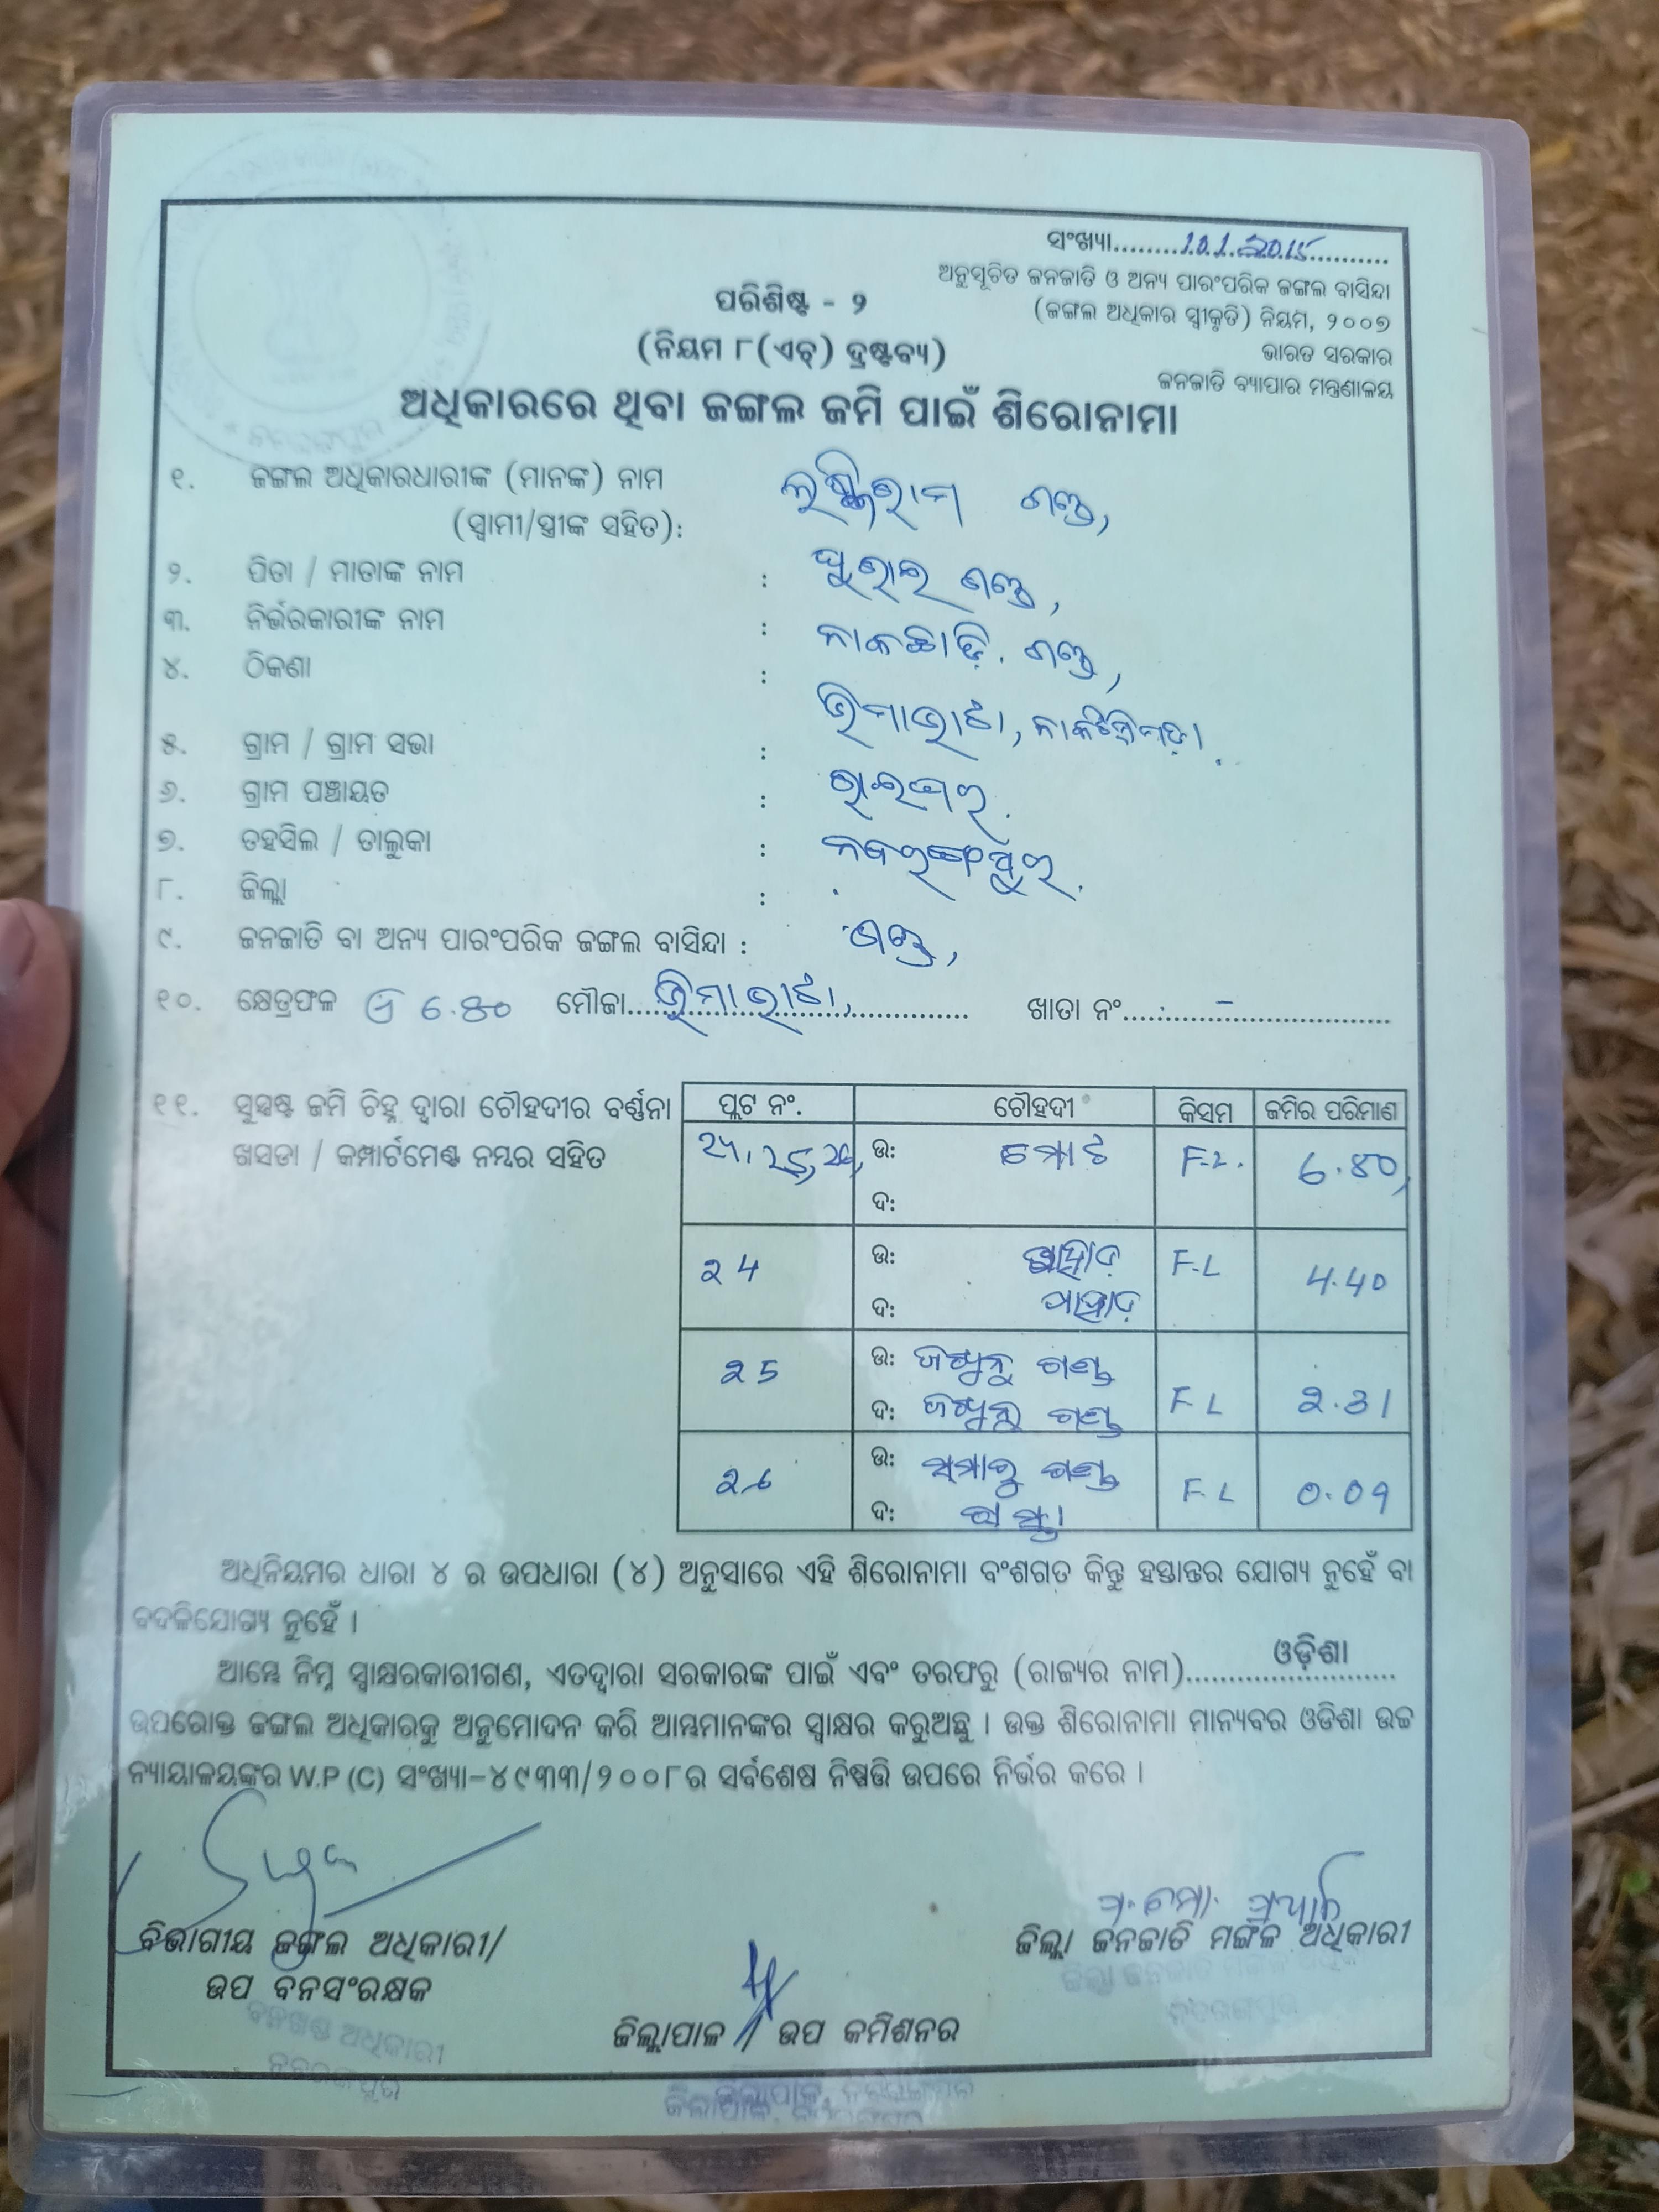 ସଂଖ୍ୟା........101.2015..........
ଅନୁସୂଚିତ ଜନଜାତି ଓ ଅନ୍ୟ ପାରଂପରିକ ଜଙ୍ଗଲ ବାସିନ୍ଦା
(ଜଙ୍ଗଲ ଅଧିକାର ସ୍ୱୀକୃତି) ନିୟମ, ୨୦୦୭
ଭାରତ ସରକାର
ଜନଜାତି ବ୍ୟାପାର ମନ୍ତ୍ରଣାଳୟ
ପରିଶିଷ୍ଟ - ୨
(ନିୟମ ୮(ଏଚ୍) ଦ୍ରଷ୍ଟବ୍ୟ)
ଅଧିକାରରେ ଥିବା ଜଙ୍ଗଲ ଜମି ପାଇଁ ଶିରୋନାମା
୧. ଜଙ୍ଗଲ ଅଧିକାରଧାରୀଙ୍କ (ମାନଙ୍କ) ନାମ
(ସ୍ୱାମୀ/ସ୍ତ୍ରୀଙ୍କ ସହିତ): ଗଣ୍ଡ,
୨. ପିତା / ମାତାଙ୍କ ନାମ : ଗଣ୍ଡ,
୩. ନିର୍ଭରକାରୀଙ୍କ ନାମ : ଗଣ୍ଡ,
୪. ଠିକଣା :
୫. ଗ୍ରାମ / ଗ୍ରାମ ସଭା :
୬. ଗ୍ରାମ ପଞ୍ଚାୟତ :
୭. ତହସିଲ / ତାଲୁକା : ରାଇଘର.
୮. ଜିଲ୍ଲା : ନବରଙ୍ଗପୁର.
୯. ଜନଜାତି ବା ଅନ୍ୟ ପାରଂପରିକ ଜଙ୍ଗଲ ବାସିନ୍ଦା : ଗଣ୍ଡ,
୧୦. କ୍ଷେତ୍ରଫଳ ଏ 6.80 ମୌଜା............ ଖାତା ନଂ......–......
୧୧. ସୁସ୍ପଷ୍ଟ ଜମି ଚିହ୍ନ ଦ୍ୱାରା ଚୌହଦୀର ବର୍ଣ୍ଣନା
ଖସଡା / କମ୍ପାର୍ଟମେଣ୍ଟ ନମ୍ବର ସହିତ
ପ୍ଲଟ ନଂ. ଚୌହଦୀ କିସମ ଜମିର ପରିମାଣ
24, 25, 26, ଉ: ମୋଟ F.L. 6.80,
ଦ:
24 ଉ: ପାହାଡ଼ F.L 4.40
ଦ: ପାହାଡ଼
25 ଉ: ଗଣ୍ଡ F L 2.31
ଦ: ଗଣ୍ଡ
26 ଉ: ଗଣ୍ଡ F.L 0.09
ଦ: ରାସ୍ତା
ଅଧିନିୟମର ଧାରା ୪ ର ଉପଧାରା (୪) ଅନୁସାରେ ଏହି ଶିରୋନାମା ବଂଶଗତ କିନ୍ତୁ ହସ୍ତାନ୍ତର ଯୋଗ୍ୟ ନୁହେଁ ବା
ବଦଳିଯୋଗ୍ୟ ନୁହେଁ ।
ଆମ୍ଭେ ନିମ୍ନ ସ୍ୱାକ୍ଷରକାରୀଗଣ, ଏତଦ୍ୱାରା ସରକାରଙ୍କ ପାଇଁ ଏବଂ ତରଫରୁ (ରାଜ୍ୟର ନାମ)......ଓଡ଼ିଶା......
ଉପରୋକ୍ତ ଜଙ୍ଗଲ ଅଧିକାରକୁ ଅନୁମୋଦନ କରି ଆମ୍ଭମାନଙ୍କର ସ୍ୱାକ୍ଷର କରୁଅଛୁ । ଉକ୍ତ ଶିରୋନାମା ମାନ୍ୟବର ଓଡିଶା ଉଚ୍ଚ
ନ୍ୟାୟାଳୟଙ୍କର W.P (C) ସଂଖ୍ୟା-୪୯୩୩/୨୦୦୮ର ସର୍ବଶେଷ ନିଷ୍ପତ୍ତି ଉପରେ ନିର୍ଭର କରେ ।
ବିଭାଗୀୟ ଜଙ୍ଗଲ ଅଧିକାରୀ/
ଉପ ବନସଂରକ୍ଷକ
ଜିଲ୍ଲା ଜନଜାତି ମଙ୍ଗଳ ଅଧିକାରୀ
ଜିଲ୍ଲା ଜନଜାତି ମଙ୍ଗଳ ଅଧିକାରୀ
ନବରଙ୍ଗପୁର
ଜିଲ୍ଲାପାଳ / ଉପ କମିଶନର
ବନଖଣ୍ଡ ଅଧିକାରୀ
ନବରଙ୍ଗପୁର
ଜିଲ୍ଲାପାଳ, ନବରଙ୍ଗପୁର